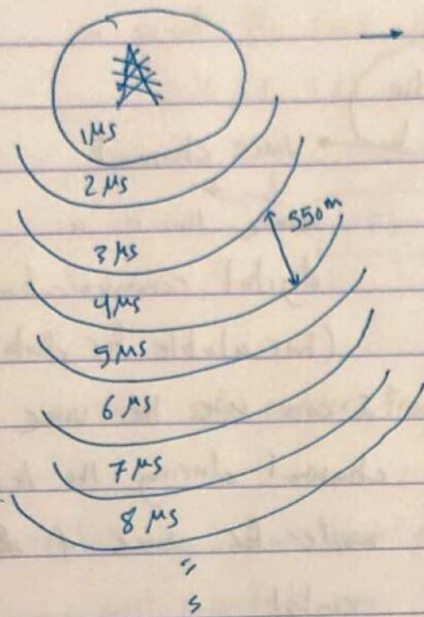 1 μs
2 μs
3 μs
550 m
4 μs
5 μs
6 μs
7 μs
8 μs